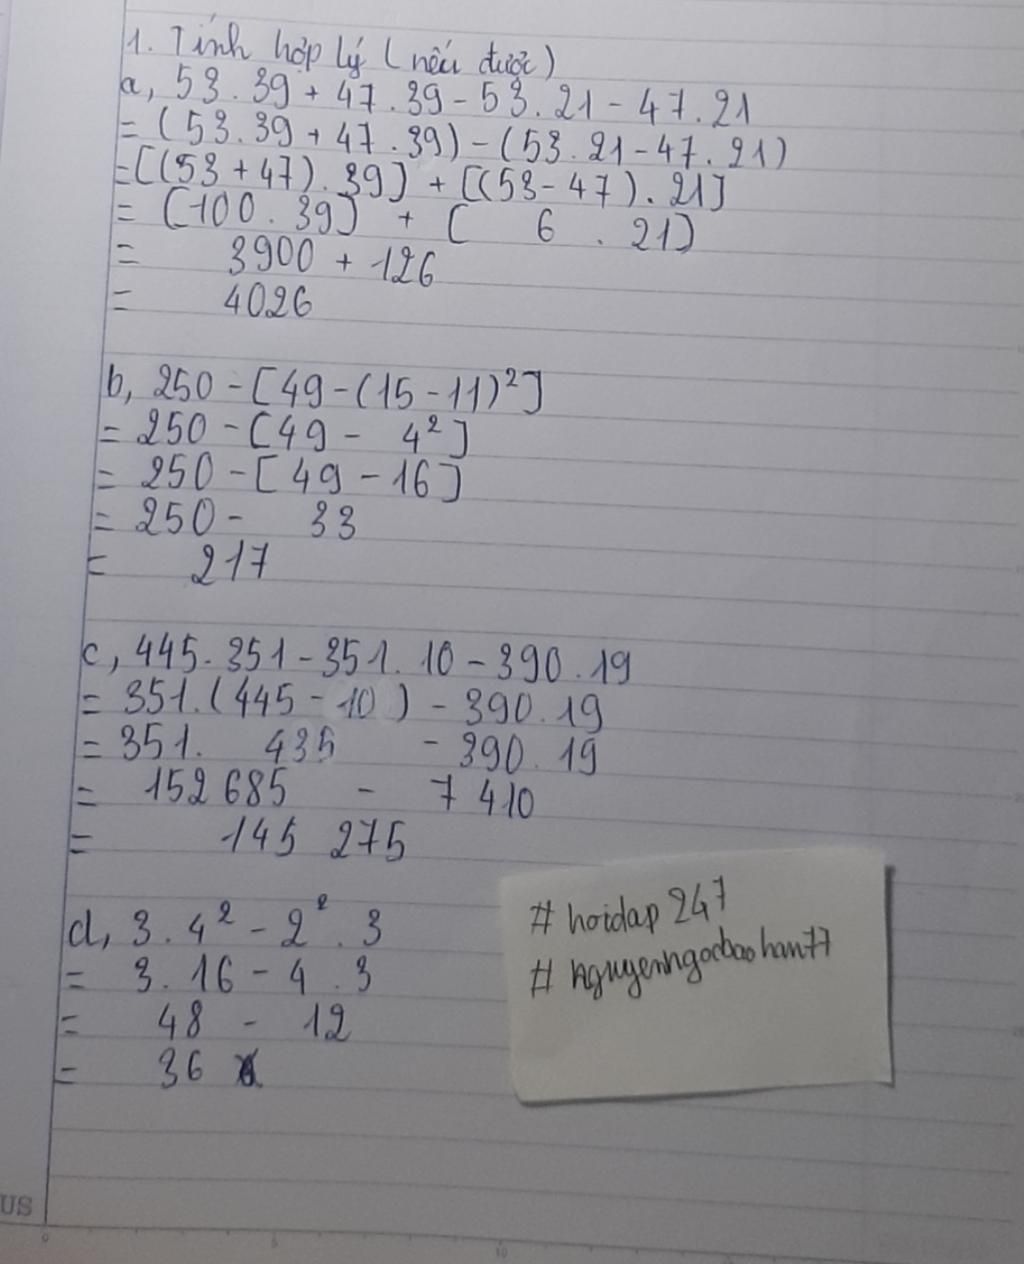 1. Tính hợp lý (nếu được)
a, 53.39 + 47.39 - 53.21 - 47.21
= (53.39 + 47.39) - (53.21 - 47.21)
= [(53 + 47).39] + [(53 - 47).21]
= [100.39] + [6.21]
= 3900 + 126
= 4026
b, 250 - [49 - (15 - 11)²]
= 250 - [49 - 4²]
= 250 - [49 - 16]
= 250 - 33
= 217
c, 445.351 - 351.10 - 390.19
= 351.(445 - 10) - 390.19
= 351.435 - 390.19
= 152 685 - 7 410
= 145 275
d, 3.4² - 2².3
= 3.16 - 4.3
= 48 - 12
= 36
# hoidap 247
# nguyenngocbaohan77
US
0 5 10